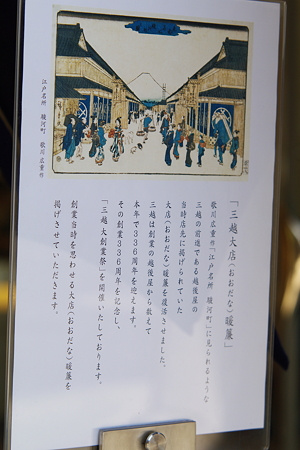 江戸名所 駿河町 歌川広重作
「三越大店(おおだな)暖簾」
歌川広重作「江戸名所 駿河町」に見られるような
三越の前進である越後屋の
当時店先に掲げられていた
大店(おおだな)暖簾を復活させました。
三越は創業の越後屋から数えて
本年で336周年を迎えます。
その創業336周年を記念し、
「三越 大創業祭」を開催いたしております。
創業当時を思わせる大店(おおだな)暖簾を
掲げさせていただきます。